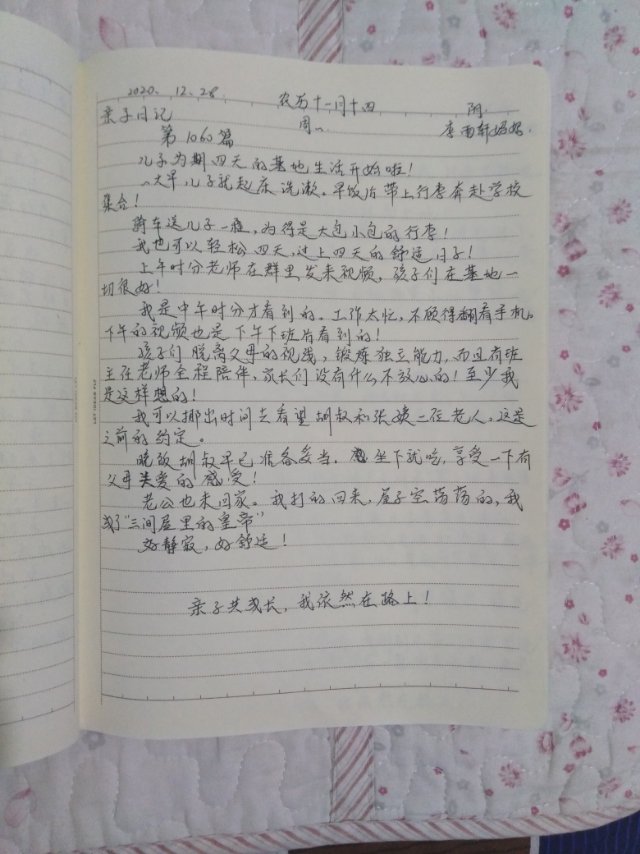 2020. 12. 28 农历十一月十四 阴.
亲子日记 周一 李雨轩妈妈.
第1060篇
儿子为期四天的基地生活开始啦!
一大早儿子就起床洗漱。早饭后带上行李奔赴学校
集合!
骑车送儿子一程,为得是大包小包的行李!
我也可以轻松四天,过上四天的舒适日子!
上午时分老师在群里发来视频,孩子们在基地一
切很好!
我是中午时分才看到的。工作太忙,不顾得翻看手机。
下午的视频也是下午下班后看到的!
孩子们脱离父母的视线,锻炼独立能力,而且有班
主任老师全程陪伴,家长们没有什么不放心的!至少我
是这样想的!
我可以挪出时间去看望胡叔和张姨二位老人,这是
之前的约定。
晚饭胡叔早已准备妥当,坐下就吃,享受一下有
父母关爱的感受!
老公也未回家。我打的回来,屋子空荡荡的,我
成了“三间屋里的皇帝”
好静寂,好舒适!
亲子共成长,我依然在路上!